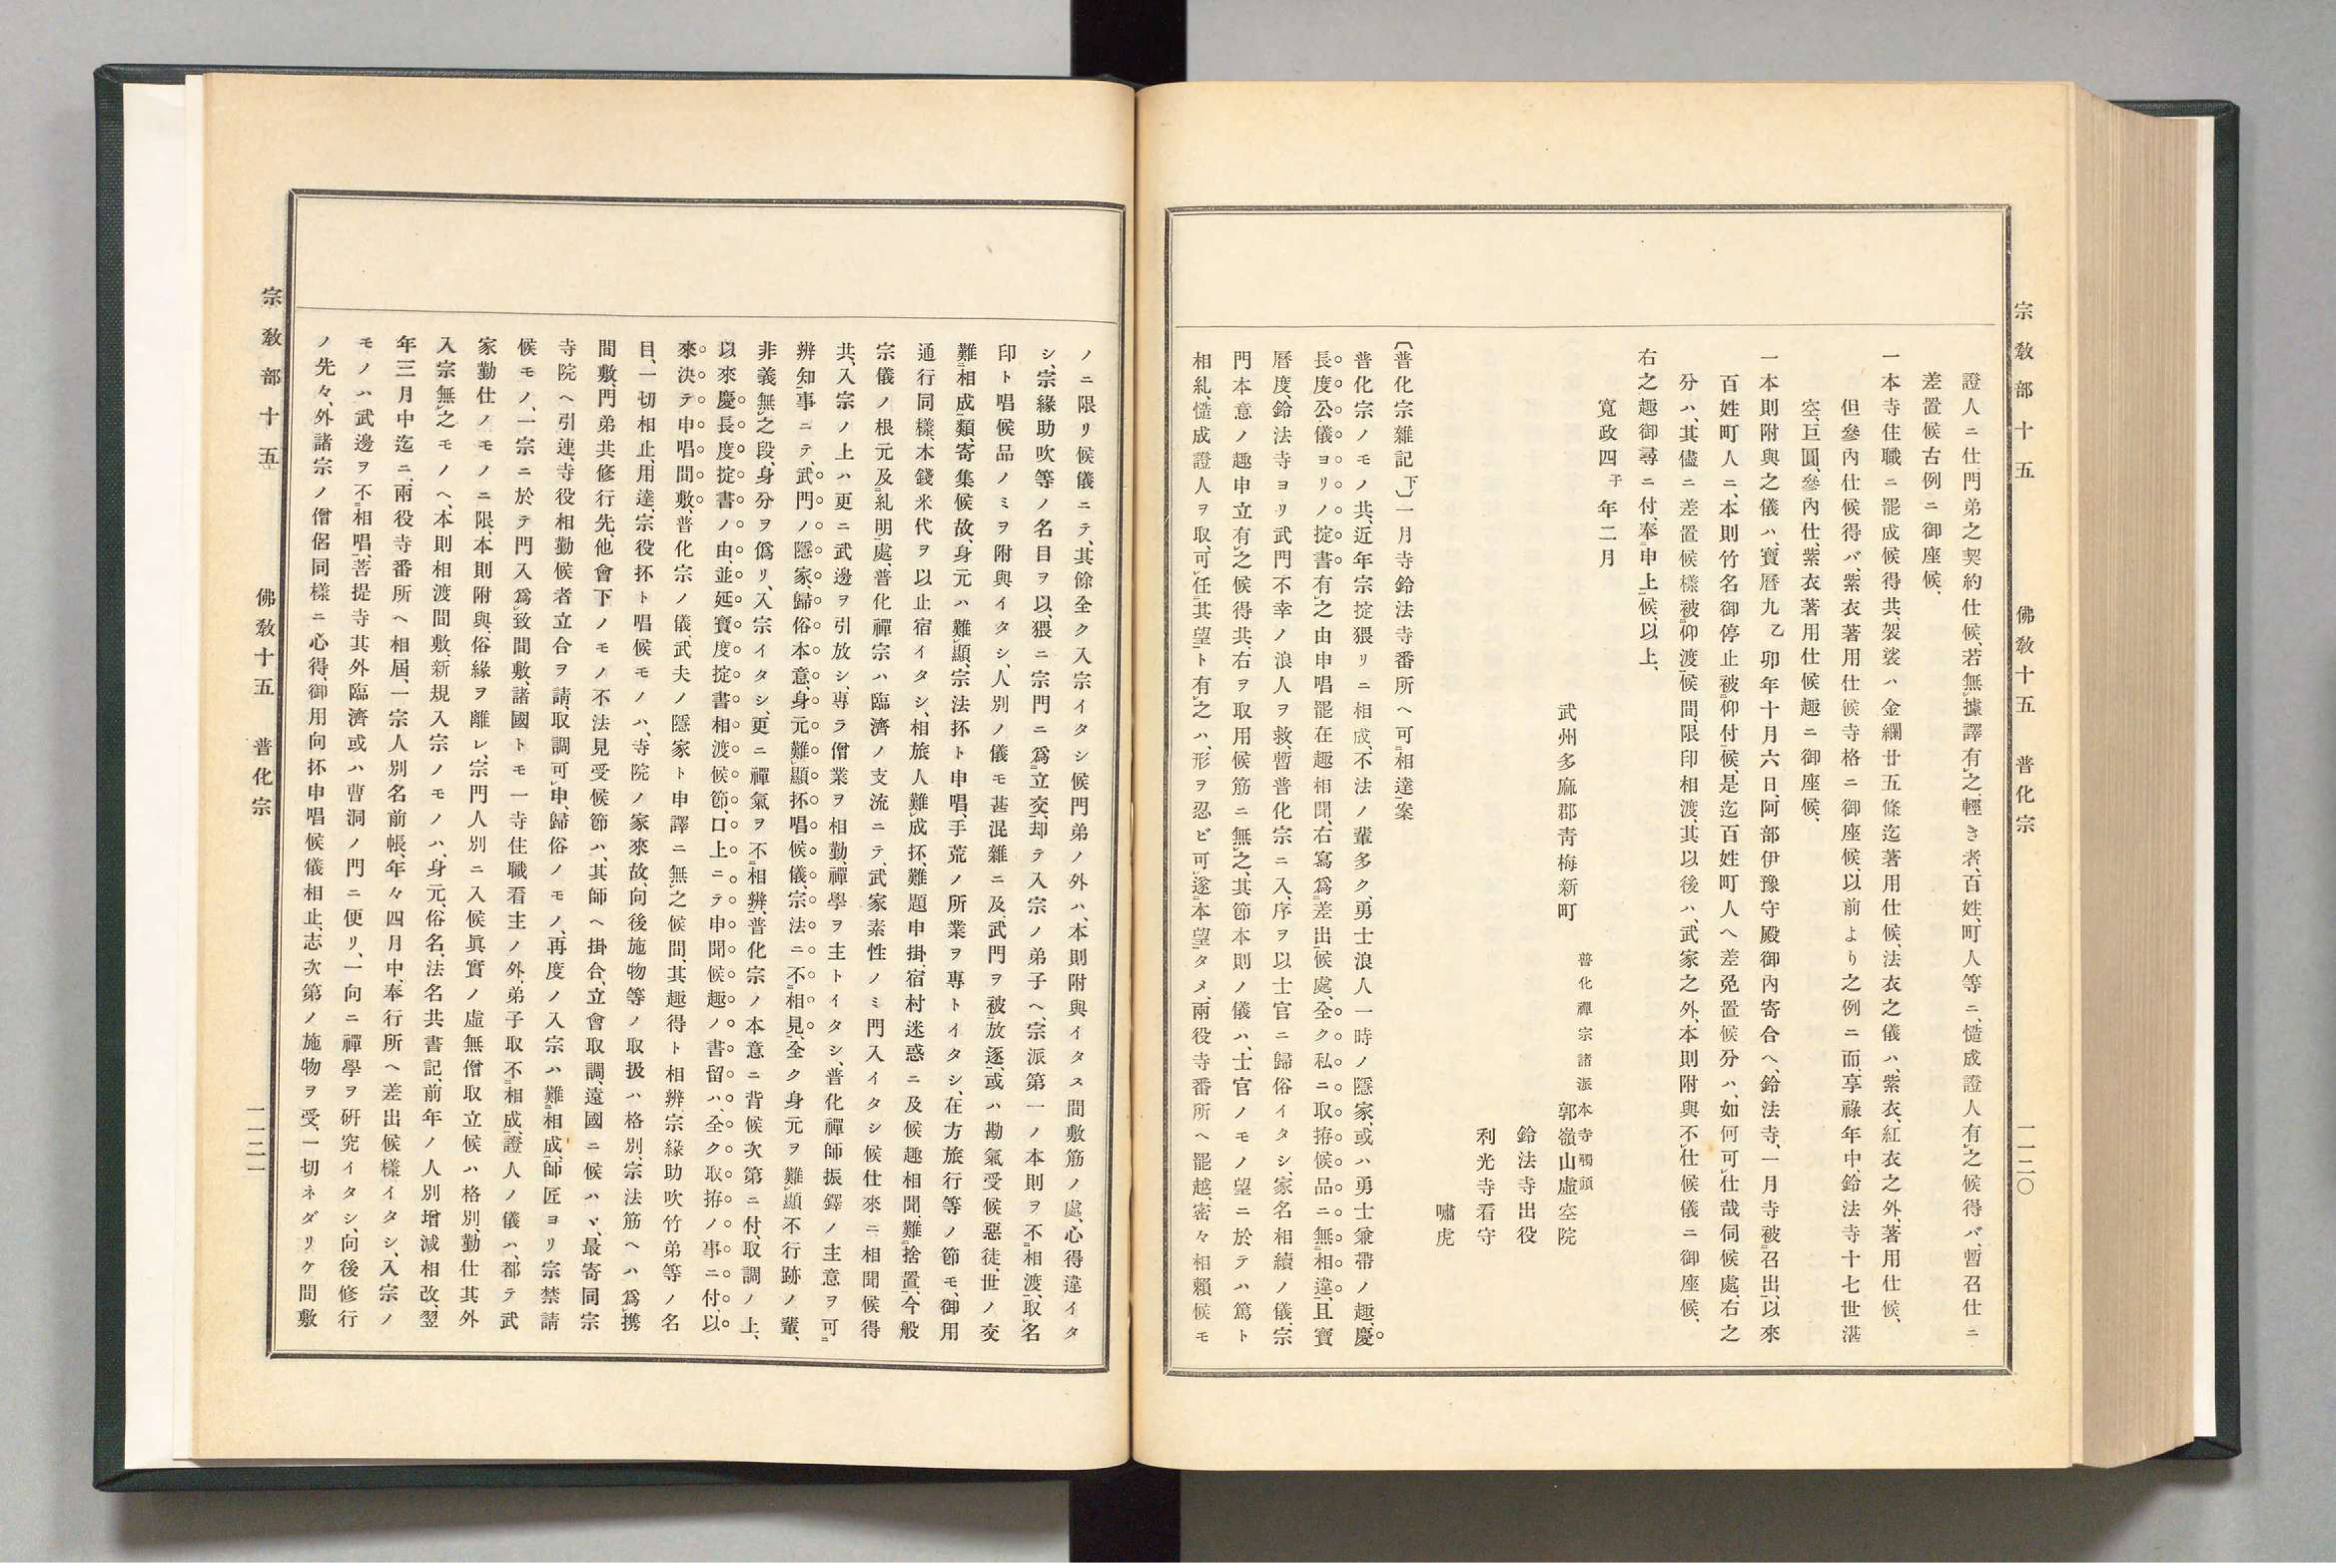 宗教部十五　佛教十五　普化宗　一一二〇
證人ニ仕、門弟之契約仕候、若無據譯有之、輕き者、百姓、町人等ニ、慥成證人有之候得バ、暫召仕ニ
差置候古例ニ御座候、
一本寺住職ニ罷成候得共、袈裟ハ金襴廿五條迄著用仕候、法衣之儀ハ、紫衣、紅衣之外、著用仕候、
但參內仕候得バ、紫衣著用仕候寺格ニ御座候、以前より之例ニ而、享祿年中、鈴法寺十七世湛
空、巨圓、參內仕、紫衣著用仕候趣ニ御座候、
一本則附與之儀ハ、寶曆九乙卯年十月六日、阿部伊豫守殿御內寄合へ、鈴法寺、一月寺被召出、以來
百姓町人ニ、本則竹名御停止被仰付候、是迄百姓町人へ差免置候分ハ、如何可仕哉伺候處、右之
分ハ、其儘ニ差置候樣被仰渡候間、限印相渡、其以後ハ、武家之外、本則附與不仕候儀ニ御座候、
右之趣御尋ニ付、奉申上候、以上、
寬政四子年二月
武州多麻郡靑梅新町
普化禪宗諸派本寺觸頭
郭嶺山虛空院
鈴法寺出役
利光寺看守
嘯虎
〔普化宗雜記下〕一月寺鈴法寺番所へ可相達案
普化宗ノモノ共、近年宗掟猥リニ相成、不法ノ輩多ク、勇士浪人一時ノ隱家、或ハ勇士兼帶ノ趣、慶
長度公儀ヨリノ掟書有之由申唱罷在趣相聞、右寫爲差出候處、全ク私ニ取拵候品ニ無相違、且寶
曆度、鈴法寺ヨリ武門不幸ノ浪人ヲ救、暫普化宗ニ入、序ヲ以士官ニ歸俗イタシ、家名相續ノ儀、宗
門本意ノ趣申立有之候得共、右ヲ取用候筋ニ無之、其節本則ノ儀ハ、士官ノモノ望ニ於テハ篤ト
相糺、慥成證人ヲ取、可任其望ト有之ハ、形ヲ忍ビ可遂本望タメ、兩役寺番所へ罷越、密々相賴候モ
ノニ限リ候儀ニテ、其餘全ク入宗イタシ候門弟ノ外ハ、本則附與イタス間敷筋ノ處、心得違イタ
シ、宗緣助吹等ノ名目ヲ以、猥ニ宗門ニ爲立交、却テ入宗ノ弟子へ、宗派第一ノ本則ヲ不相渡、取名
印ト唱候品ノミヲ附與イタシ、人別ノ儀モ甚混雜ニ及、武門ヲ被放逐、或ハ勘氣受候惡徒、世ノ交
難相成類、寄集候故、身元ハ難顯、宗法抔ト申唱、手荒ノ所業ヲ專トイタシ、在方旅行等ノ節モ、御用
通行同樣、木錢米代ヲ以止宿イタシ、相旅人難成抔、難題申掛、宿村迷惑ニ及候趣相聞、難捨置、今般
宗儀ノ根元及糺明處、普化禪宗ハ臨濟ノ支流ニテ、武家素性ノミ門入イタシ候仕來ニ相聞候得
共、入宗ノ上ハ更ニ武邊ヲ引放シ、專ラ僧業ヲ相勤、禪學ヲ主トイタシ、普化禪師振鐸ノ主意ヲ可
辨知事ニテ、武門ノ隱家、歸俗本意、身元難顯抔唱候儀、宗法ニ不相見、全ク身元ヲ難顯不行跡ノ輩、
非義無之段、身分ヲ僞リ、入宗イタシ、更ニ禪氣ヲ不相辨、普化宗ノ本意ニ背候次第ニ付、取調ノ上、
以來慶長度掟書ノ由、並延寶度掟書相渡候節、口上ニテ申聞候趣ノ書留ハ、全ク取拵ノ事ニ付、以
來決テ申唱間敷、普化宗ノ儀、武夫ノ隱家ト申譯ニ無之候間、其趣得ト相辨、宗緣助吹竹弟等ノ名
目、一切相止、用達、宗役抔ト唱候モノハ、寺院ノ家來故、向後施物等ノ取扱ハ格別、宗法筋へハ爲携
間敷、門弟共修行先、他會下ノモノ不法見受候節ハ、其師へ掛合、立會取調、遠國ニ候ハヾ、最寄同宗
寺院へ引連、寺役相勤候者立合ヲ請、取調可申、歸俗ノモノ、再度ノ入宗ハ難相成、師匠ヨリ宗禁請
候モノ、一宗ニ於テ門入爲致間敷、諸國トモ一寺住職看主ノ外、弟子取不相成、證人ノ儀ハ、都テ武
家勤仕ノモノニ限、本則附與、俗緣ヲ離レ、宗門人別ニ入候眞實ノ虛無僧取立候ハ格別、勤仕其外
入宗無之モノへ、本則相渡間敷、新規入宗ノモノハ、身元、俗名、法名共書記、前年ノ人別增減相改、翌
年三月中迄ニ、兩役寺番所へ相屆、一宗人別名前帳、年々四月中、奉行所へ差出候樣イタシ、入宗ノ
モノハ武邊ヲ不相唱、菩提寺其外臨濟或ハ曹洞ノ門ニ便リ、一向ニ禪學ヲ硏究イタシ、向後修行
ノ先々、外諸宗ノ僧侶同樣ニ心得、御用向抔申唱候儀相止、志次第ノ施物ヲ受、一切ネダリケ間敷
宗教部十五　佛教十五　普化宗　一一二一